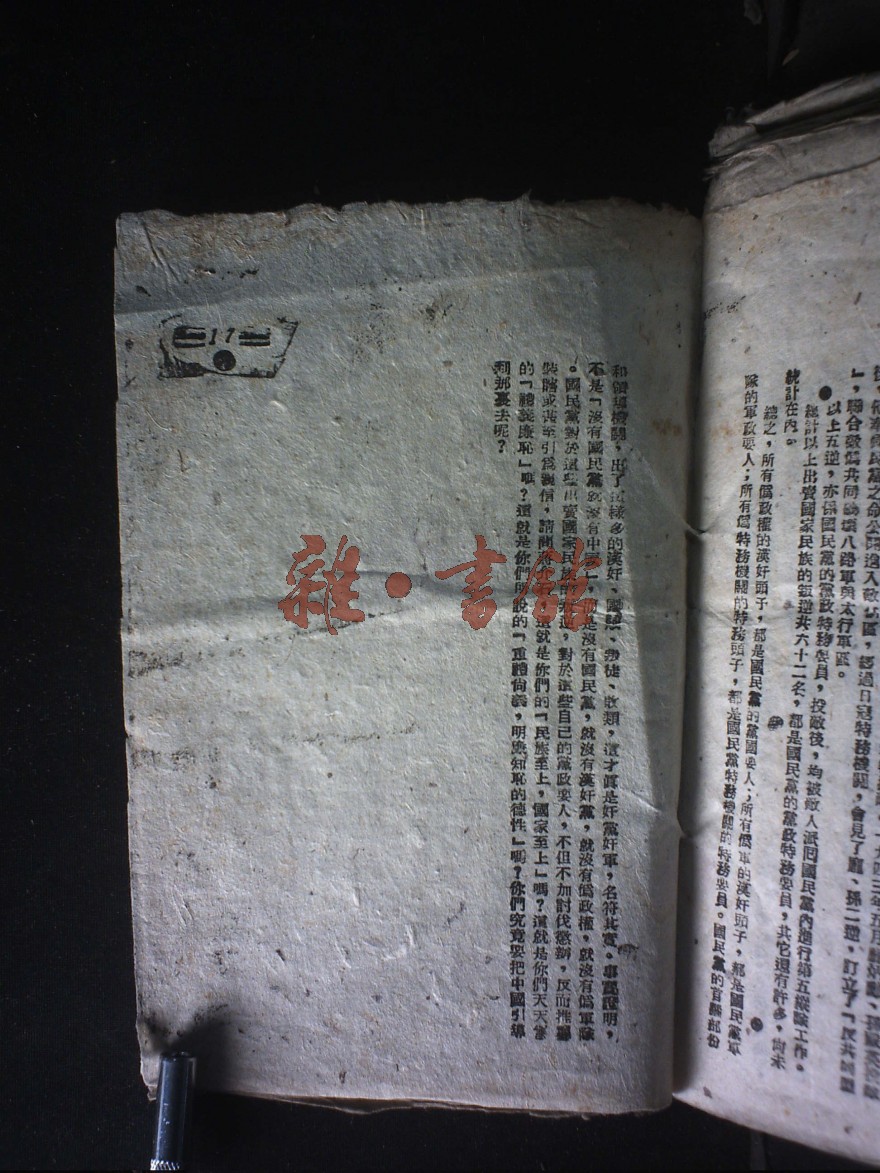 以上五逆,亦係國民黨的黨政特務委員,投敵後,均被敵人派回國民黨內進行第五縱隊工作。
總計以上出賣國家民族的叛逆共六十二名,都是國民黨的黨政特務委員,其它還有許多,尚未
統計在內。
總之,所有僞政權的漢奸頭子,都是國民黨的黨國要人;所有僞軍的漢奸頭子,都是國民黨軍
隊的軍政要人;所有僞特務機關的特務頭子,都是國民黨特務機關的特務委員。國民黨的首腦部份
和領導機關,出了這樣多的漢奸、國賊、叛徒、敗類,這才真是奸黨奸軍,名符其實。事實證明,
不是「沒有國民黨就沒有中國」,而是沒有國民黨,就沒有漢奸黨,就沒有僞政權,就沒有僞軍隊
。國民黨對於這些出賣國家民族的叛逆,對於這些自己的黨政要人,不但不加討伐懲辦,反而推聾
裝瞎或甚至引爲親信,請問這就是你們的「民族至上,國家至上」嗎?這就是你們天天書
的「禮義廉恥」嗎?這就是你們所說的「重禮尚義,明廉知恥的德性」嗎?你們究竟要把中國引導
到那裏去呢?
17
雜·書館